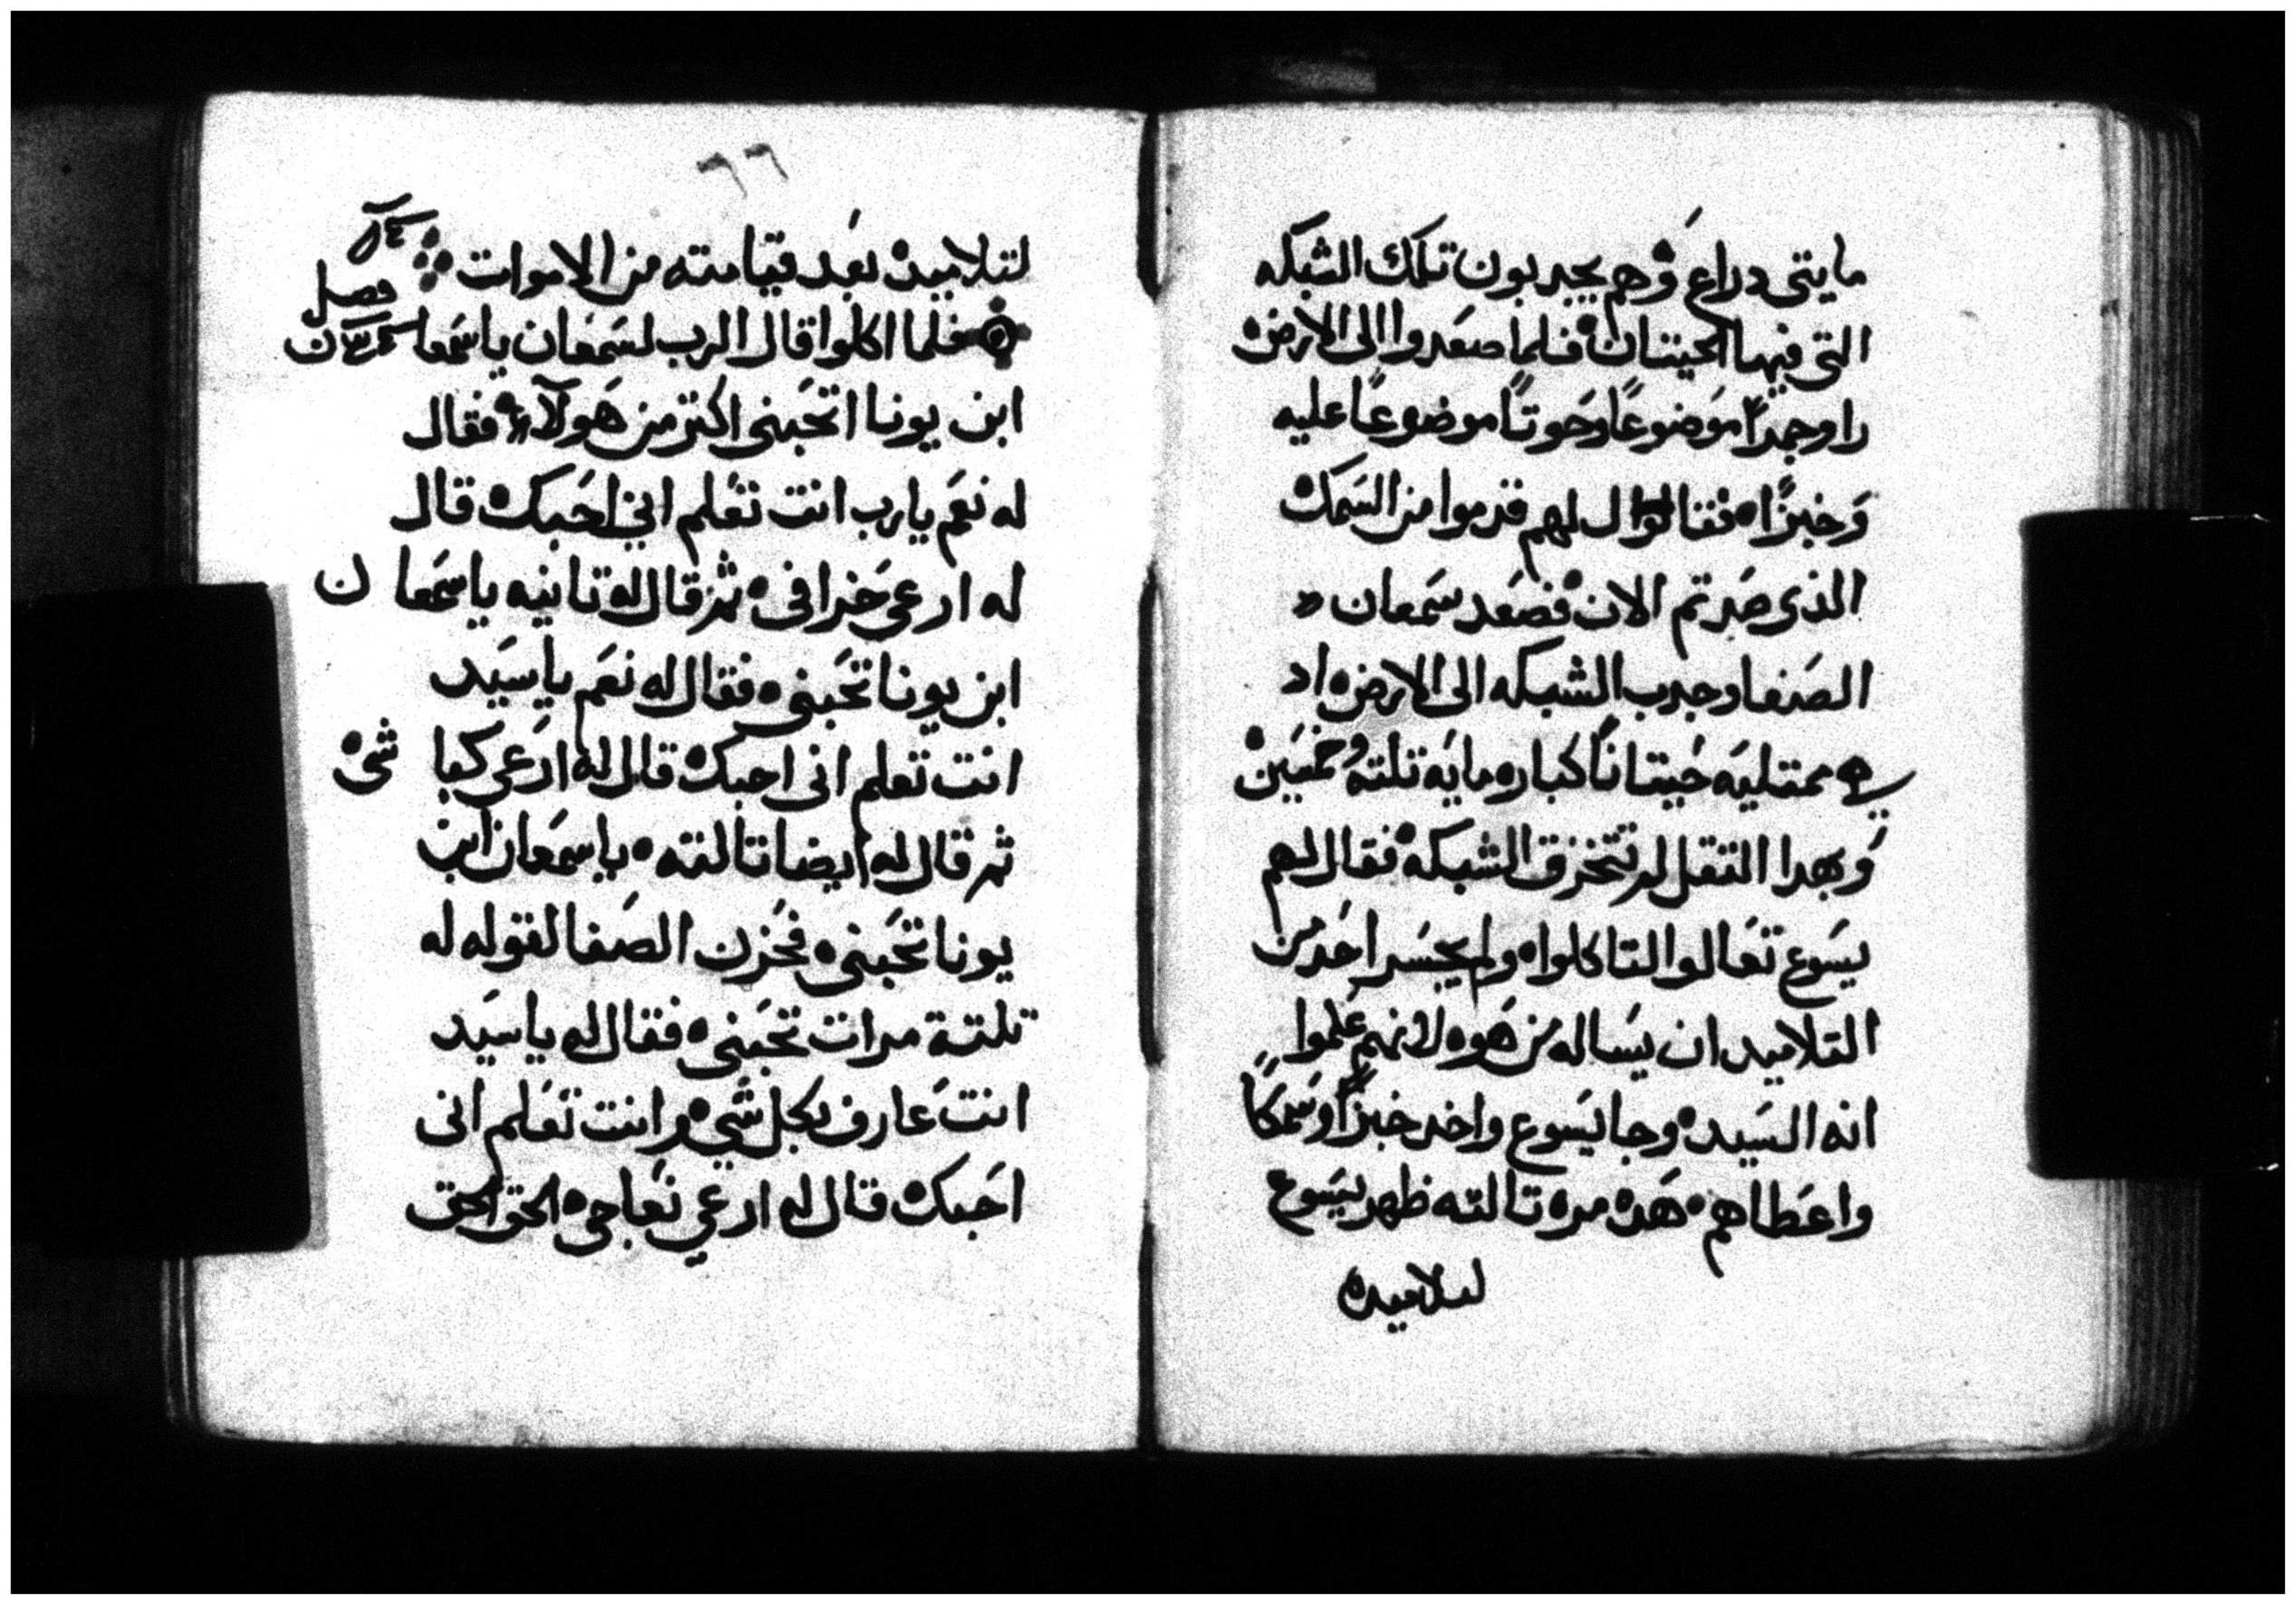 مايتى دراع وهم يجدبون تلك الشبكه
التى فيها الحيتان فلما صعدوا الى الارض
راو جمرًا موضوعًا وحوتًا موضوعًا عليه
وخبزًا فقال لهم قدموا من السمك
الذى صدتم الان فصعد سمعان
الصفا وجدب الشبكه الى الارض اد
هى ممتليه حيتانًا كبار مايه تلته وخمسين
وبهدا التقل لم تتخزق الشبكه فقال لهم
يسوع تعالوا لتاكلوا ولم يجسر احد من
التلاميد ان يساله من هو لانهم علموا
انه السيد وجا يسوع واخد خبزًا وسمكًا
واعطاهم هده مره تالته ظهر يسوع
لتلاميده
٦٦
لتلاميده بعد قيامته من الاموات
فصل
فلما اكلوا قال الرب لسمعان ياسمعان
ابن يونا اتحبنى اكتر من هولآء فقال
له نعم يارب انت تعلم انى احبك قال
له ارعى خرافى ثم قال له تانيه ياسمعان
ابن يونا تحبنى فقال له نعم ياسيد
انت تعلم انى احبك قال له ارعى كباشى
ثم قال له ايضا تالته ياسمعان ابن
يونا تحبنى فحزن الصفا لقوله له
تلتة مرات تحبنى فقال له ياسيد
انت عارف بكل شى وانت تعلم انى
احبك قال له ارعي نعاجى الحق الحق